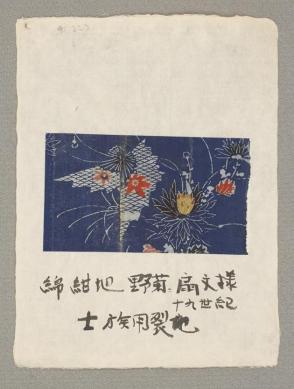 綿紺地 野菊ニ扇文様
十九世紀
士族用裂地